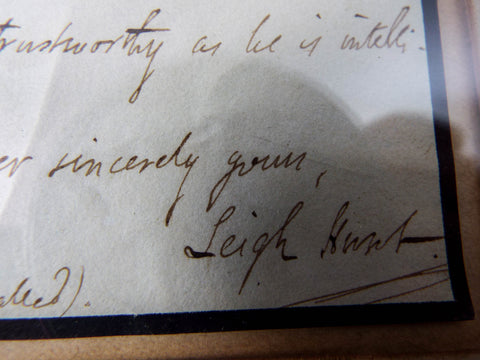 trustworthy as he is intelli-
er sincerely yours,
Leigh Hunt.
alled).